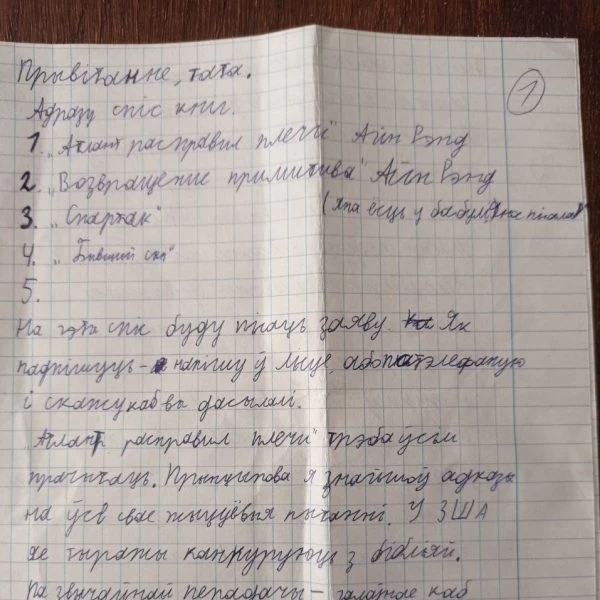 Прывітанне, тата.
1
Адразу спіс кніг.
1. „Атлант расправил плечи" Айн Рэнд
2. „Возвращение примитива" Айн Рэнд
3. „Спартак"
(яна ёсць у бабулі, яна пісала)
4. „Бывший сын"
5.
На гэты спіс буду пісаць заяву. Як
падпішуць - напішу ў лісце, або патэлефаную
і скажу каб вы дасылалі.
„Атлант расправил плечи" трэба ўсім
прачытаць. Прынцыпова я знайшоў адказы
на ўсе свае жыццёвыя пытанні. У ЗША
яе тыражы канкуруюць з бібліяй.
па звычайнай перадачы - галоўнае каб